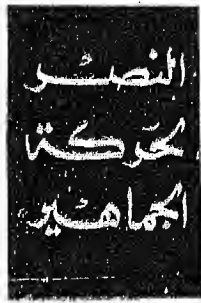 النصر
لحركة
الجماهير